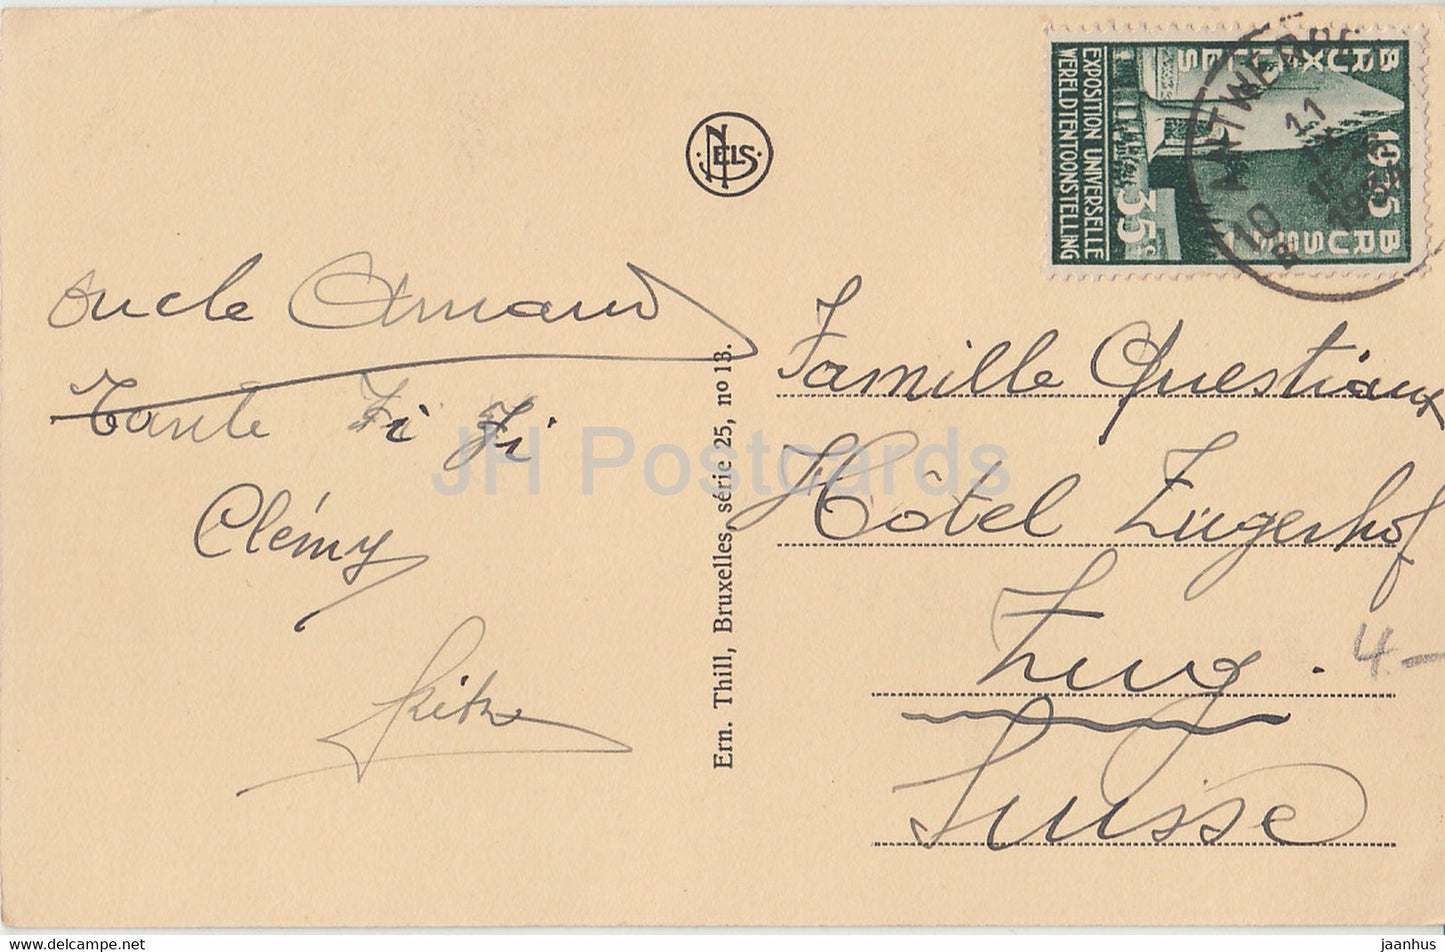 Oncle Armand
Tante Fi Fi
Clémy
NELS
Ern. Thill, Bruxelles, série 25, no 13.
BRUXELLES 1935 BRUSSEL
EXPOSITION UNIVERSELLE
WERELDTENTOONSTELLING
35c
ANTWERPEN
11
IX
10
B
Famille Questiaux
Hôtel Zugerhof
Zug.
Suisse
4-
JH Postcards
www.delcampe.net
jaanhus